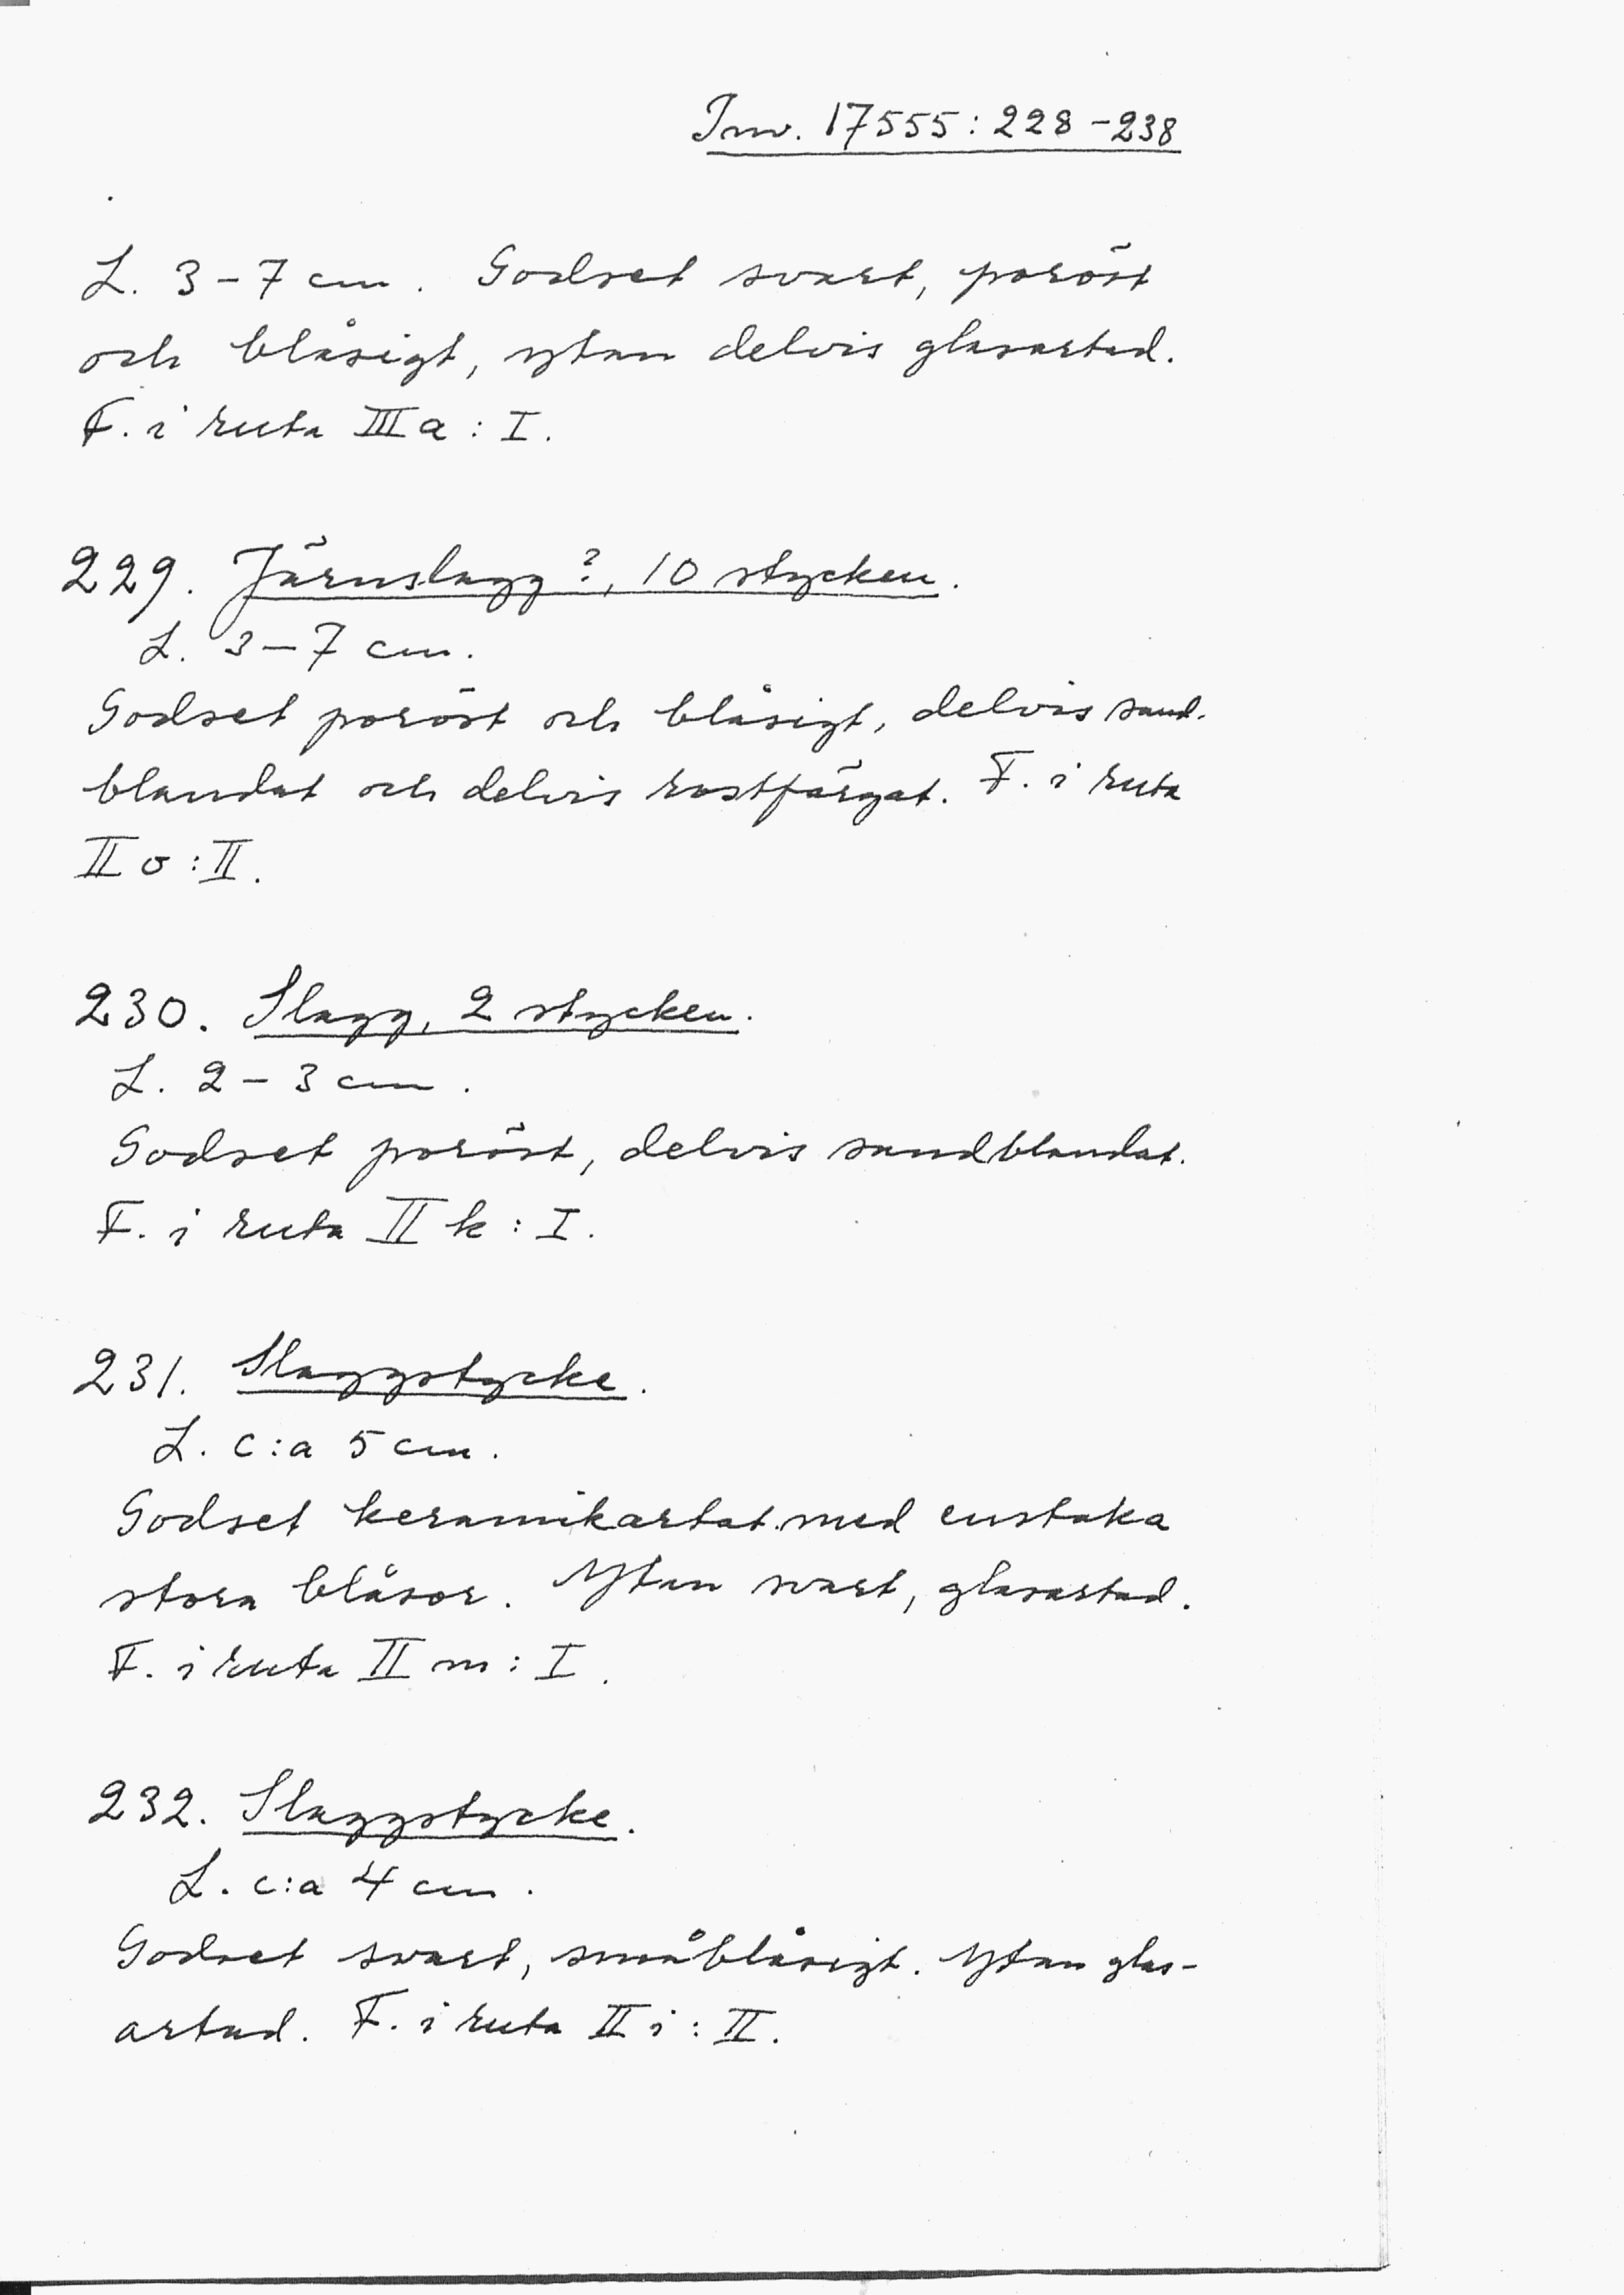 Inv. 17555:228-238
L. 3-7 cm. Godset svart, poröst
och blåsigt, ytan delvis glasartad.
F. i ruta III a : I.
229. Järnslagg?, 10 stycken.
L. 3-7 cm.
Godset poröst och blåsigt, delvis sand-
blandat och delvis rostfärgat. F. i ruta
II o : II.
230. Slagg, 2 stycken.
L. 2-3 cm.
Godset poröst, delvis sandblandat.
F. i ruta II k : I.
231. Slaggstycke.
L. c:a 5 cm.
Godset keramikartat med enstaka
stora blåsor. Ytan svart, glasartad.
F. i ruta II m : I.
232. Slaggstycke.
L. c:a 4 cm.
Godset svart, småblåsigt. Ytan glas-
artad. F. i ruta II i : II.